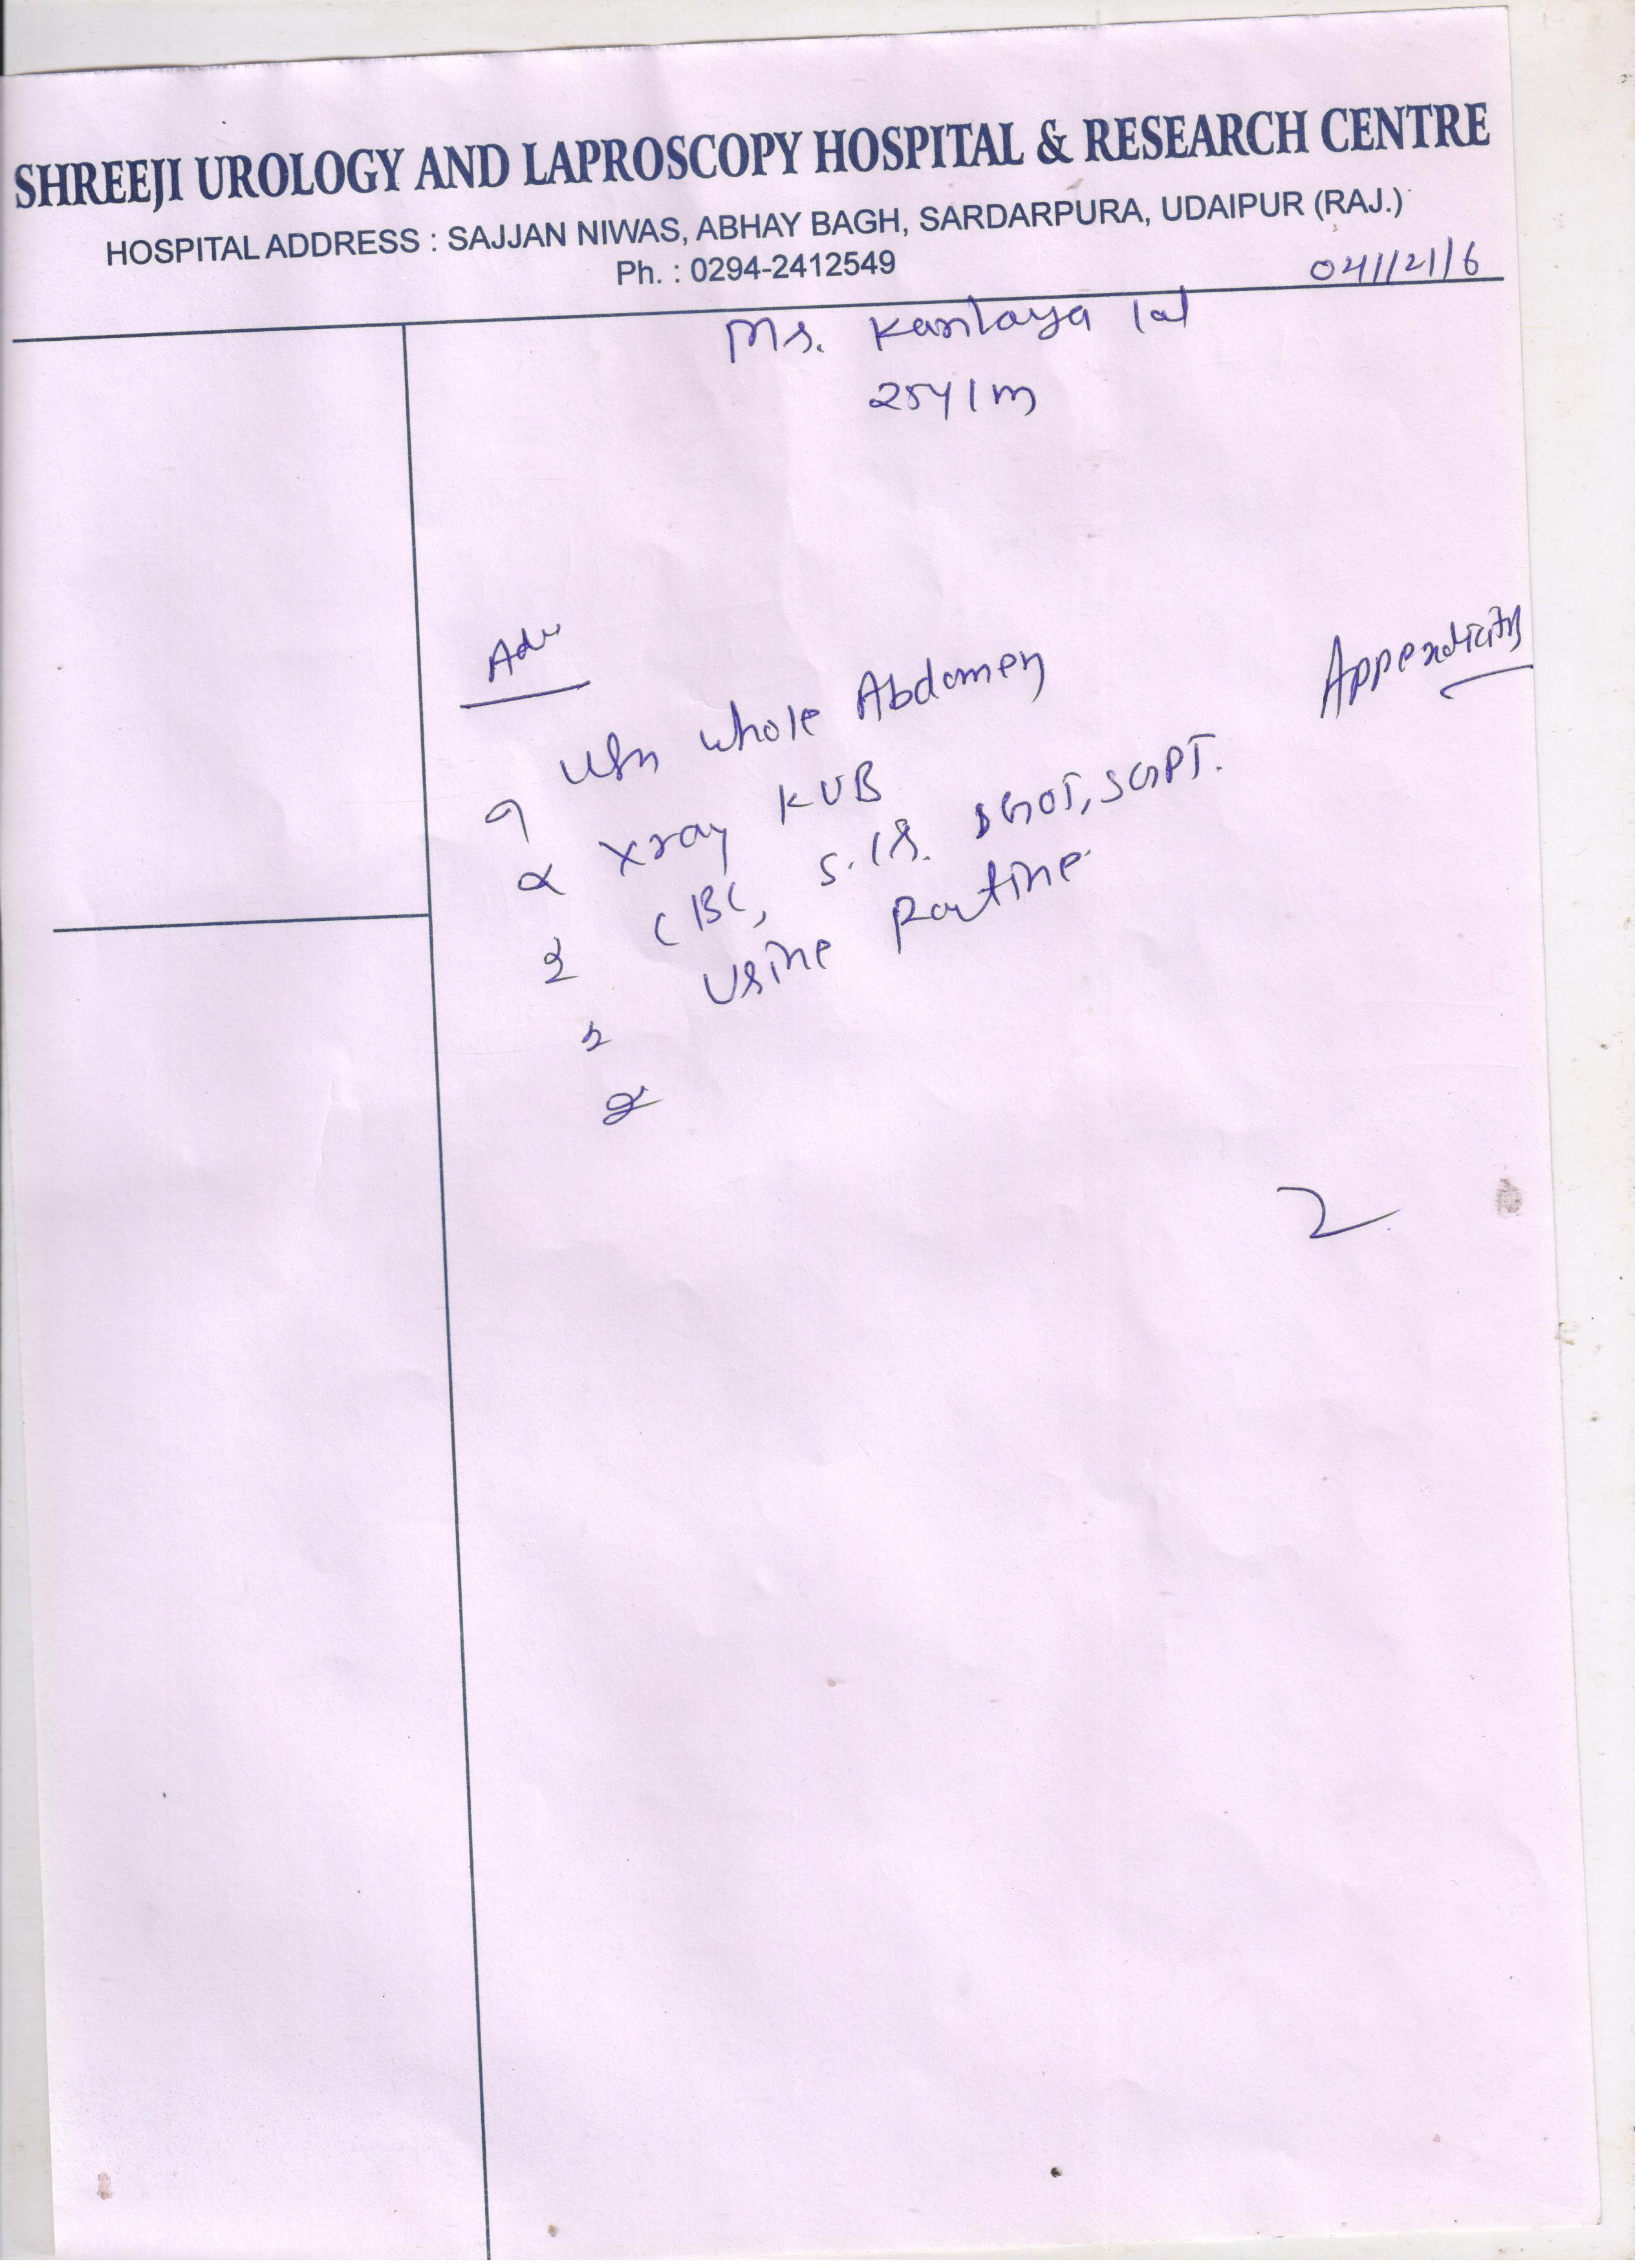 SHREEJI UROLOGY AND LAPROSCOPY HOSPITAL & RESEARCH CENTRE
HOSPITAL ADDRESS : SAJJAN NIWAS, ABHAY BAGH, SARDARPURA, UDAIPUR (RAJ.)
Ph. : 0294-2412549
Mr. Kanlaya lal
25y/m
Adv
Appendicitis
USG whole Abdomen
Xray KUB
CBC, S.Cr. SGOT, SGPT.
Urine Routine